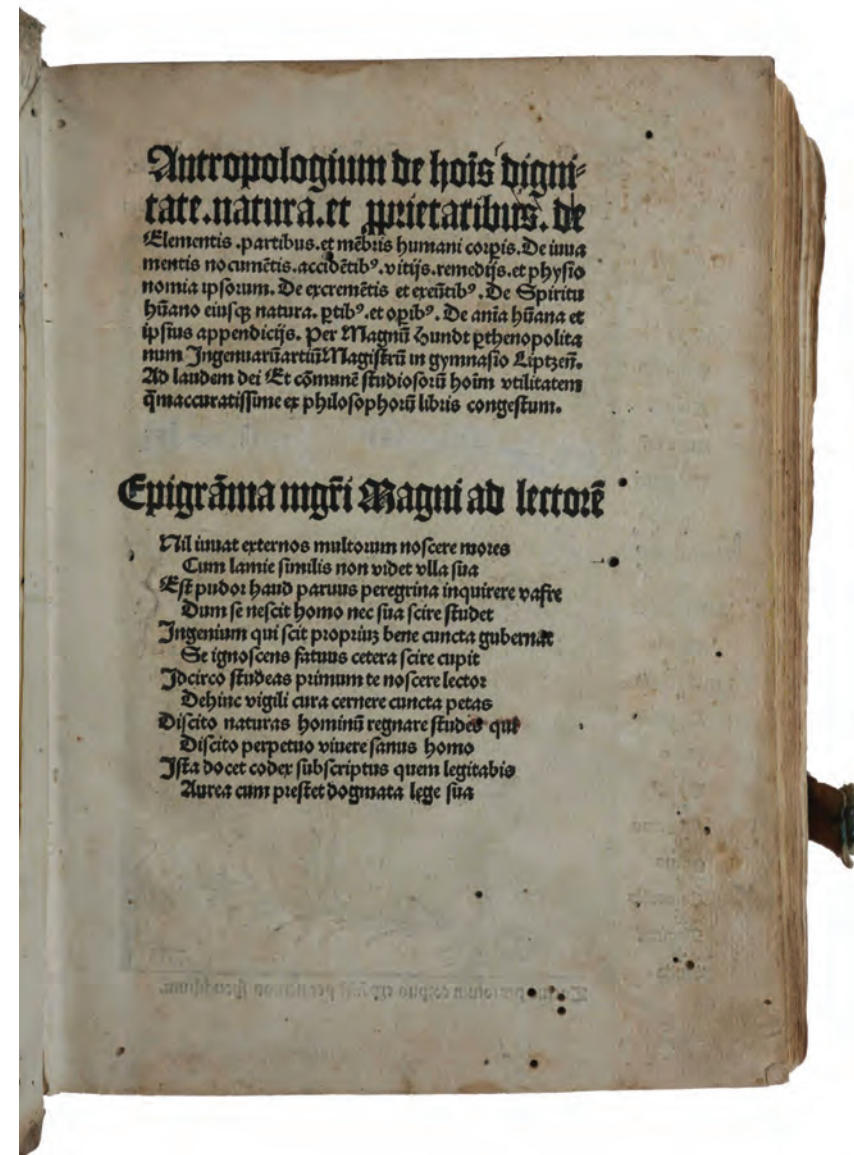 Antropologium de hoĩs digni⸗
tate.natura.et ꝓprietatibus. de
Elementis .partibus.et mẽbris humani corpis. De iuua
mentis nocumẽtis.accidẽtibꝰ.vitijs.remedijs.et physio
nomia ipsorum. De excremẽtis et exeũtibꝰ. De Spiritu
hũano eiusqꝫ natura. ꝑtibꝰ.et opĩbꝰ. De anĩa hũana et
ipsius appendicijs. Per Magnũ Hundt ꝑthenopolita
num Ingenuarũ artiũ Magistrũ in gymnasio Liptzeñ.
Ad laudem dei Et cõmunẽ studiosorũ hoĩm vtilitatem
q̃maccuratissime ex philosophorũ libris congestum.
Epigrãma mgr̃i Magni ad lectorẽ
Nil iuuat externos multorum noscere mores
Cum lamie similis non videt vlla sua
Est pudor haud paruus peregrina inquirere vafre
Dum se nescit homo nec sua scire studet
Ingenium qui scit propriuꝫ bene cuncta gubernat
Se ignoscens fatuus cetera scire cupit
Idcirco studeas primum te noscere lector
Dehinc vigili cura cernere cuncta petas
Discito naturas hominũ regnare studes qui
Discito perpetuo viuere sanus homo
Ista docet codex subscriptus quem legitabis
Aurea cum prestet dogmata lege sua